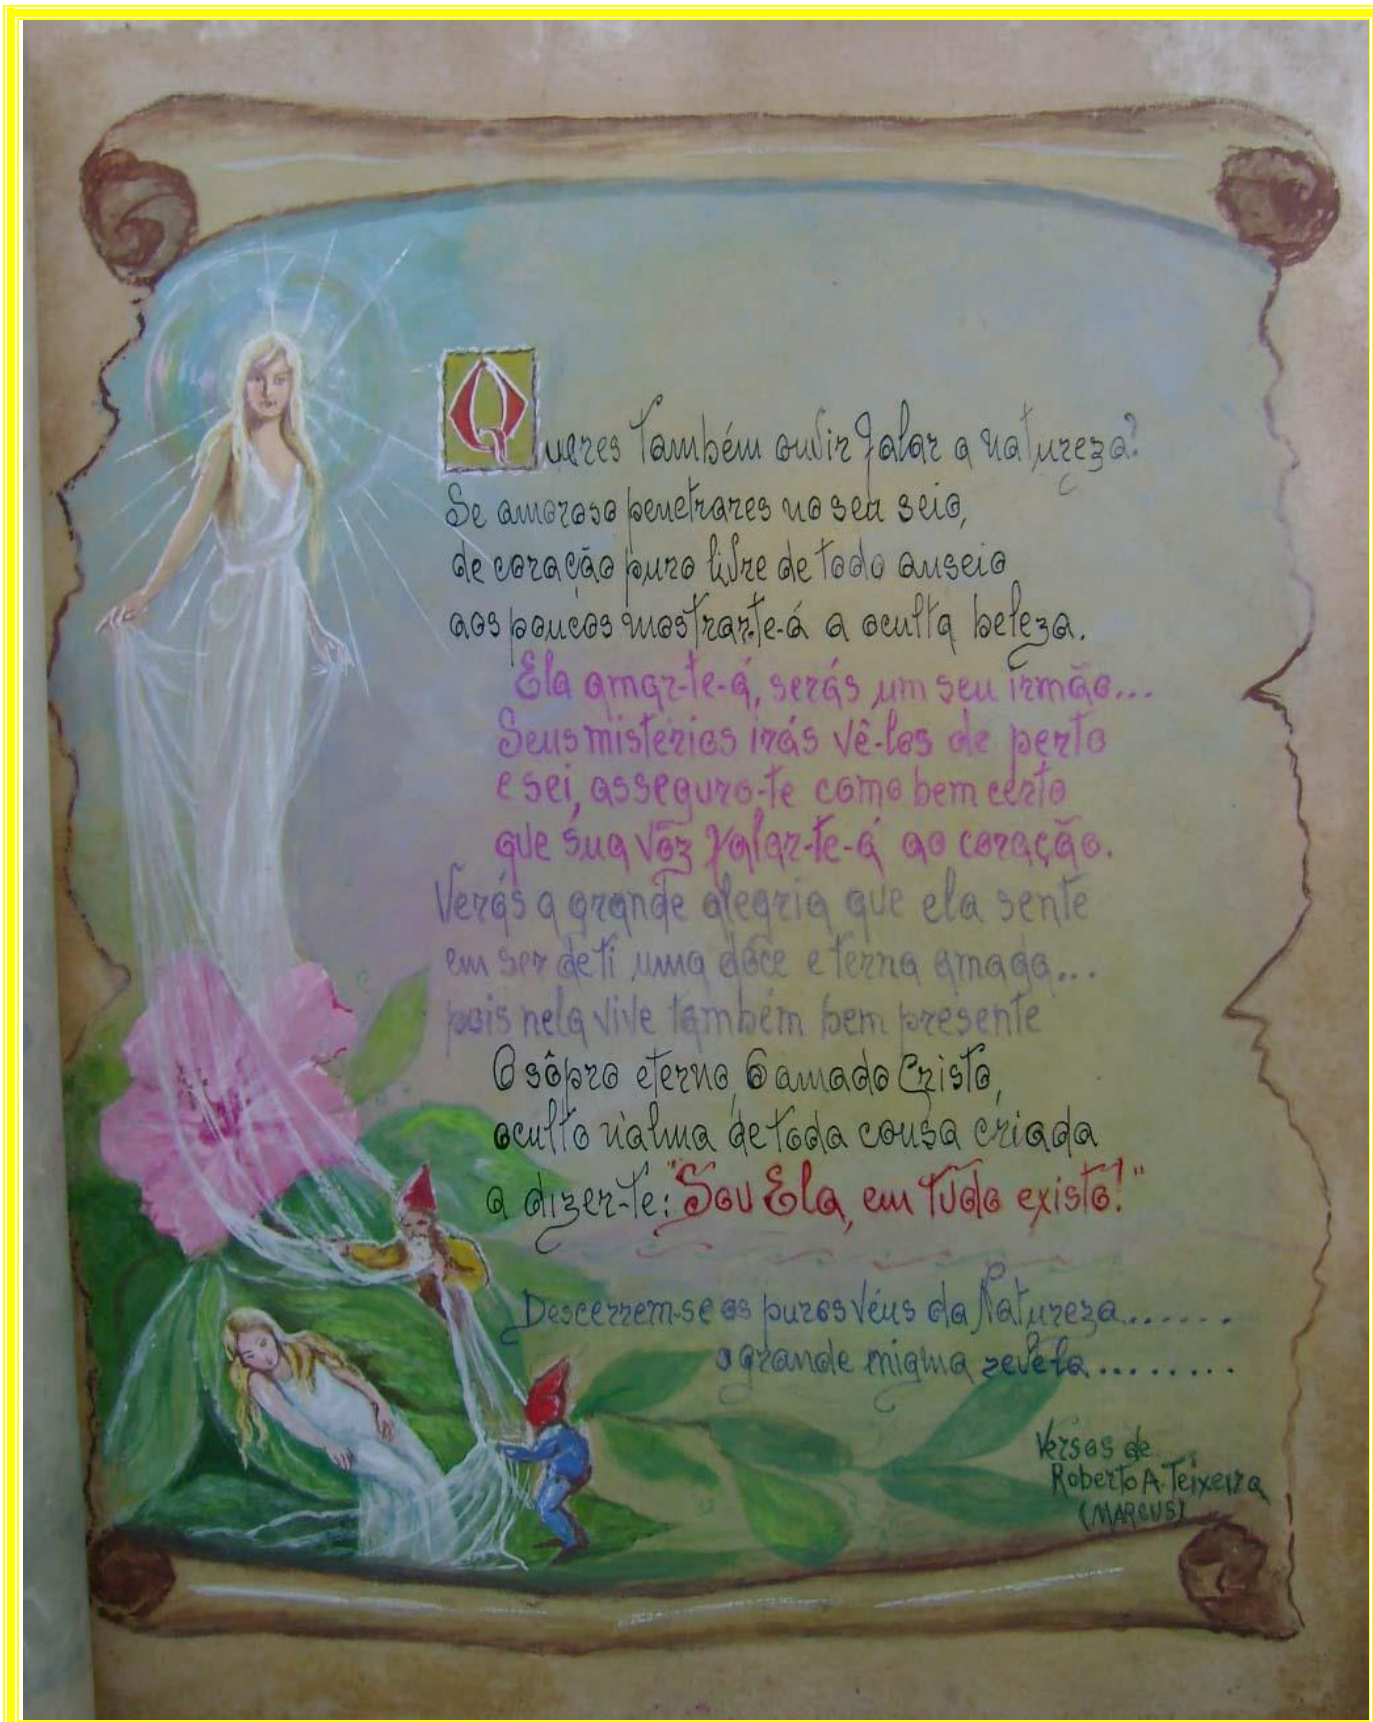 Queres também ouvir falar a natureza?
Se amoroso penetrares no seu seio,
de coração puro livre de todo anseio
aos poucos mostrar-te-á a oculta beleza.
Ela amar-te-á, serás um seu irmão...
Seus mistérios irás vê-los de perto
e sei, asseguro-te como bem certo
que sua vôz falar-te-á ao coração.
Verás a grande alegria que ela sente
em ser de ti uma doce e terna amada...
pois nela vive também bem presente
O sôpro eterno, O amado Cristo,
oculto n'alma de toda cousa criada
a dizer-te: "Sou Ela, em tudo existo!"
Descerrem-se os puros véus da Natureza.......
o grande enigma revela.........
Versos de
Roberto A. Teixeira
(MARCUS)